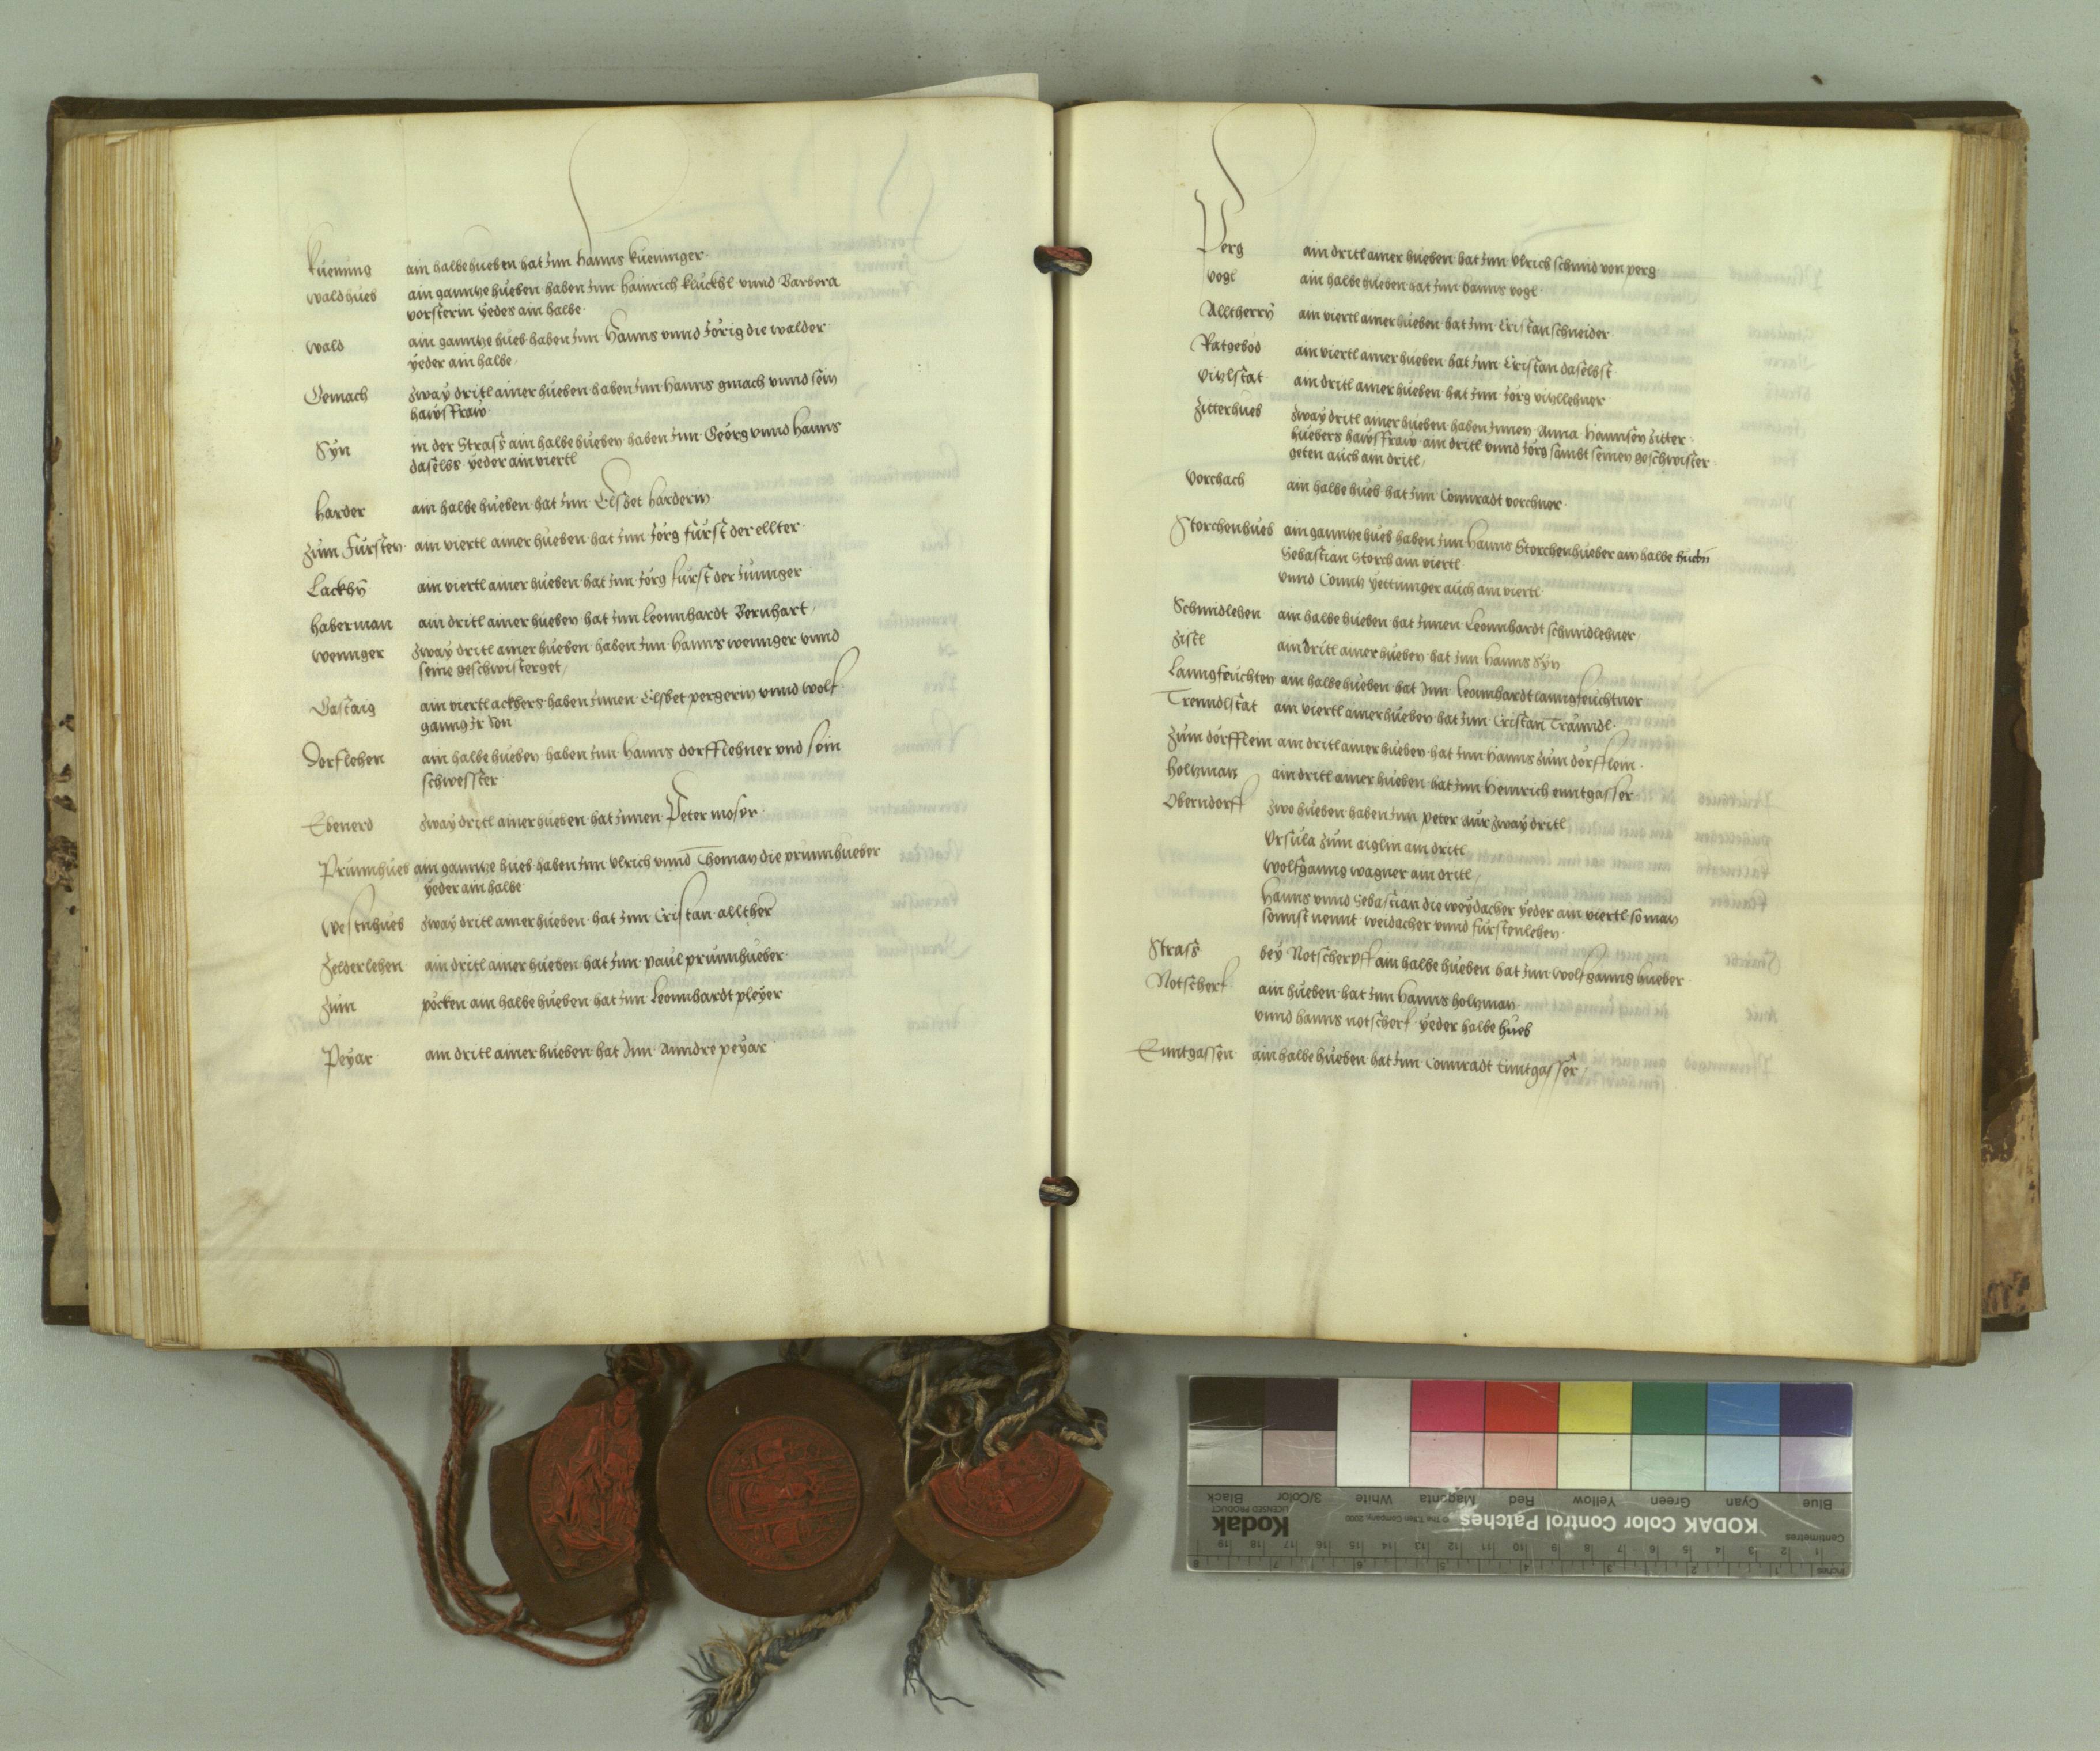 Kuening ain halbe hueben hat Inn Hanns kueninger
waldhueb ain ganntze hueben haben Inn Hainrich kluckhl vnnd Barbera
vorsterin yedes ain halbe
wald ain ganntze hueb haben Inn Hanns vnnd Jorig die walder
yeder ain halbe
Gemach zway dritl ainer hueben haben Inn Hanns gmach vnnd sein
hawsfraw
Syn in der Strass ain halbe hueben haben Inn Georg vnnd Hanns
daselbs yeder ain viertl
Harder ain halbe hueben hat Inn Elsbet Harderin
zum Fursten ain viertl ainer hueben hat Inn Jorg furst der ellter
Lackhn ain viertl ainer hueben hat Inn Jorg furst der Junnger
Haberman ain dritl ainer hueben hat Inn Leonnhardt Bernhart
wennger zway dritl ainer hueben haben Inn Hanns wennger vnnd
seine geschwisterget
Gastaig ain viertl ackhers haben Innen Elsbet pergerin vnnd wolf
ganng Ir Son
Dorflehen ain halbe hueben haben Inn Hanns dorfflehner vnd sein
schwesster
Ebenerd zway dritl ainer hueben hat Innen Peter moser
Prunnhueb ain ganntze hueb haben Inn Vlrich vnnd Thoman die prunnhueber
yeder ain halbe
Westnhueb zway dritl ainer hueben hat Inn Cristan allther
Zelderlehen ain dritl ainer hueben hat Inn paul prunnhueber
Zum pocken ain halbe hueben hat Inn Leonnhardt pleyer
Peyar ain dritl ainer hueben hat Inn Anndre peyar
Perg ain dritl ainer hueben hat Inn Vlrich schmid von perg
Vogl ain halbe hueben hat Inn Hanns vogl
Alltherrn ain viertl ainer hueben hat Inn Cristan schneider
Ratgebod ain viertl ainer hueben hat Inn Cristan daselbst
Vitzlstat ain dritl ainer hueben hat Inn Jorg vitzllehner
Zitterhueb zway dritl ainer hueben haben Innen Anna Hannsen zitter
huebers hawsfraw ain dritl vnnd Jorg sambt seinen geschwister
geten auch ain dritl
Vorchach ain halbe hueb hat Inn Connradt vorchner
Storchenhueb ain ganntze hueb haben Inn Hanns Storchenhueber ain halbe huebn
Sebastian Storch ain viertl
vnnd Conntz yettinger auch ain viertl
Schmidlehen ain halbe hueben hat Innen Leonnhardt schmidlehner
Zistl ain dritl ainer hueben hat Inn Hanns Syn
Lanngfeuchten ain halbe hueben hat Inn Leonnhardt lanngfeuchtner
Trenndlstat ain viertl ainer hueben hat Inn Cristan Traundl
Zum dorfflein ain dritl ainer hueben hat Inn Hanns zum dorfflein
Holtzman ain dritl ainer hueben hat Inn Heinrich enntgasser
Oberndorff zwo hueben haben Inn peter aur zway dritl
Vrsula zum aiglin ain dritl
Wolfganng wagner ain dritl
Hanns vnnd Sebastian die weydacher yeder ain viertl so man
sonnst nennt weidacher vnnd furstenlehen
Strass bey Notscherff ain halbe hueben hat Inn Wolfganng hueber
Notscherf ain hueben hat Inn Hanns holtzman
vnnd Hanns notscherf yeder halbe hueb
Enntgassen ain halbe hueben hat Inn Connradt Enntgasser
Blue Cyan Green Yellow Red Magenta White 3/Color Black
KODAK Color Control Patches © The Tiffen Company, 2000 Kodak
LICENSED PRODUCT
Centimetres 1 2 3 4 5 6 7 8 9 10 11 12 13 14 15 16 17 18 19
Inches 1 2 3 4 5 6 7 8